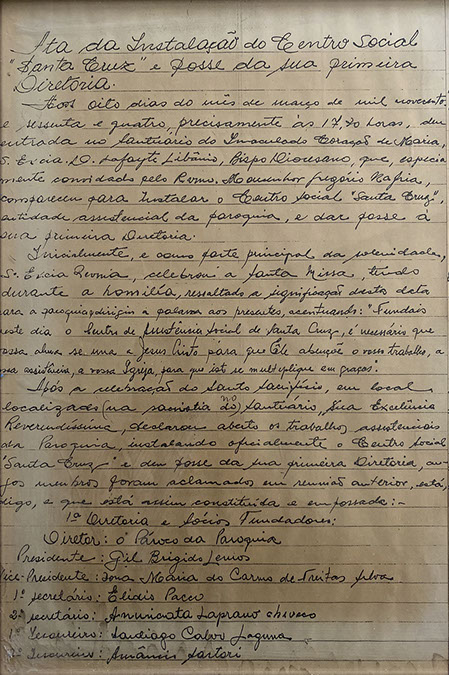 Ata da Instalação do Centro Social
"Santa Cruz" e posse da sua primeira
Diretoria.
Aos oito dias do mês de março de mil novecentos
e sessenta e quatro, precisamente às 17,30 horas, deu
entrada no Santuário do Imaculado Coração de Maria,
S. Excia. D. Lafayte Libânio, Bispo Diocesano, que, especial
mente convidado pelo Revmo. Monsenhor Gregório Nafria,
compareceu para Instalar o Centro Social "Santa Cruz",
entidade assistencial da paroquia, e dar posse à
sua primeira Diretoria.
Inicialmente, e como parte principal da solenidade,
S. Excia Revma, celebrou a Santa Missa, tendo
durante a homilía, ressaltado a significação desta data
para a paroquia e dirigiu a palavra aos presentes, acentuando: "Fundais
neste dia o Centro de Assistência Social de Santa Cruz, é necessário que
vossa alma se una a Jesus Cristo para que Êle abençõe o vosso trabalho, a
vossa assistência, a vossa Igreja, para que isto se multiplique em graças".
Após a celebração do Santo Sacrifício, em local
localizado (na sacristia do) no Santuário, Sua Excelência
Reverendíssima, declarou aberto os trabalhos assistenciais
da Paroquia, instalando oficialmente o Centro Social
"Santa Cruz" e deu posse da sua primeira Diretoria, cu-
jos membros foram aclamados em reunião anterior, está,
digo, e que está assim constituida e empossada:-
1ª Diretoria e Sócios Fundadores:
Diretor: O Pároco da Paroquia
Presidente: Gil Brigido Lemos
Vice-Presidente: Dona Maria do Carmo de Freitas Silva
1º secretário: Elidio Pacco
2º secretário: Annunciata Laprano
1º Tesoureiro: Santiago Calvo Laguna
2º Tesoureiro: Amâncio Sartori